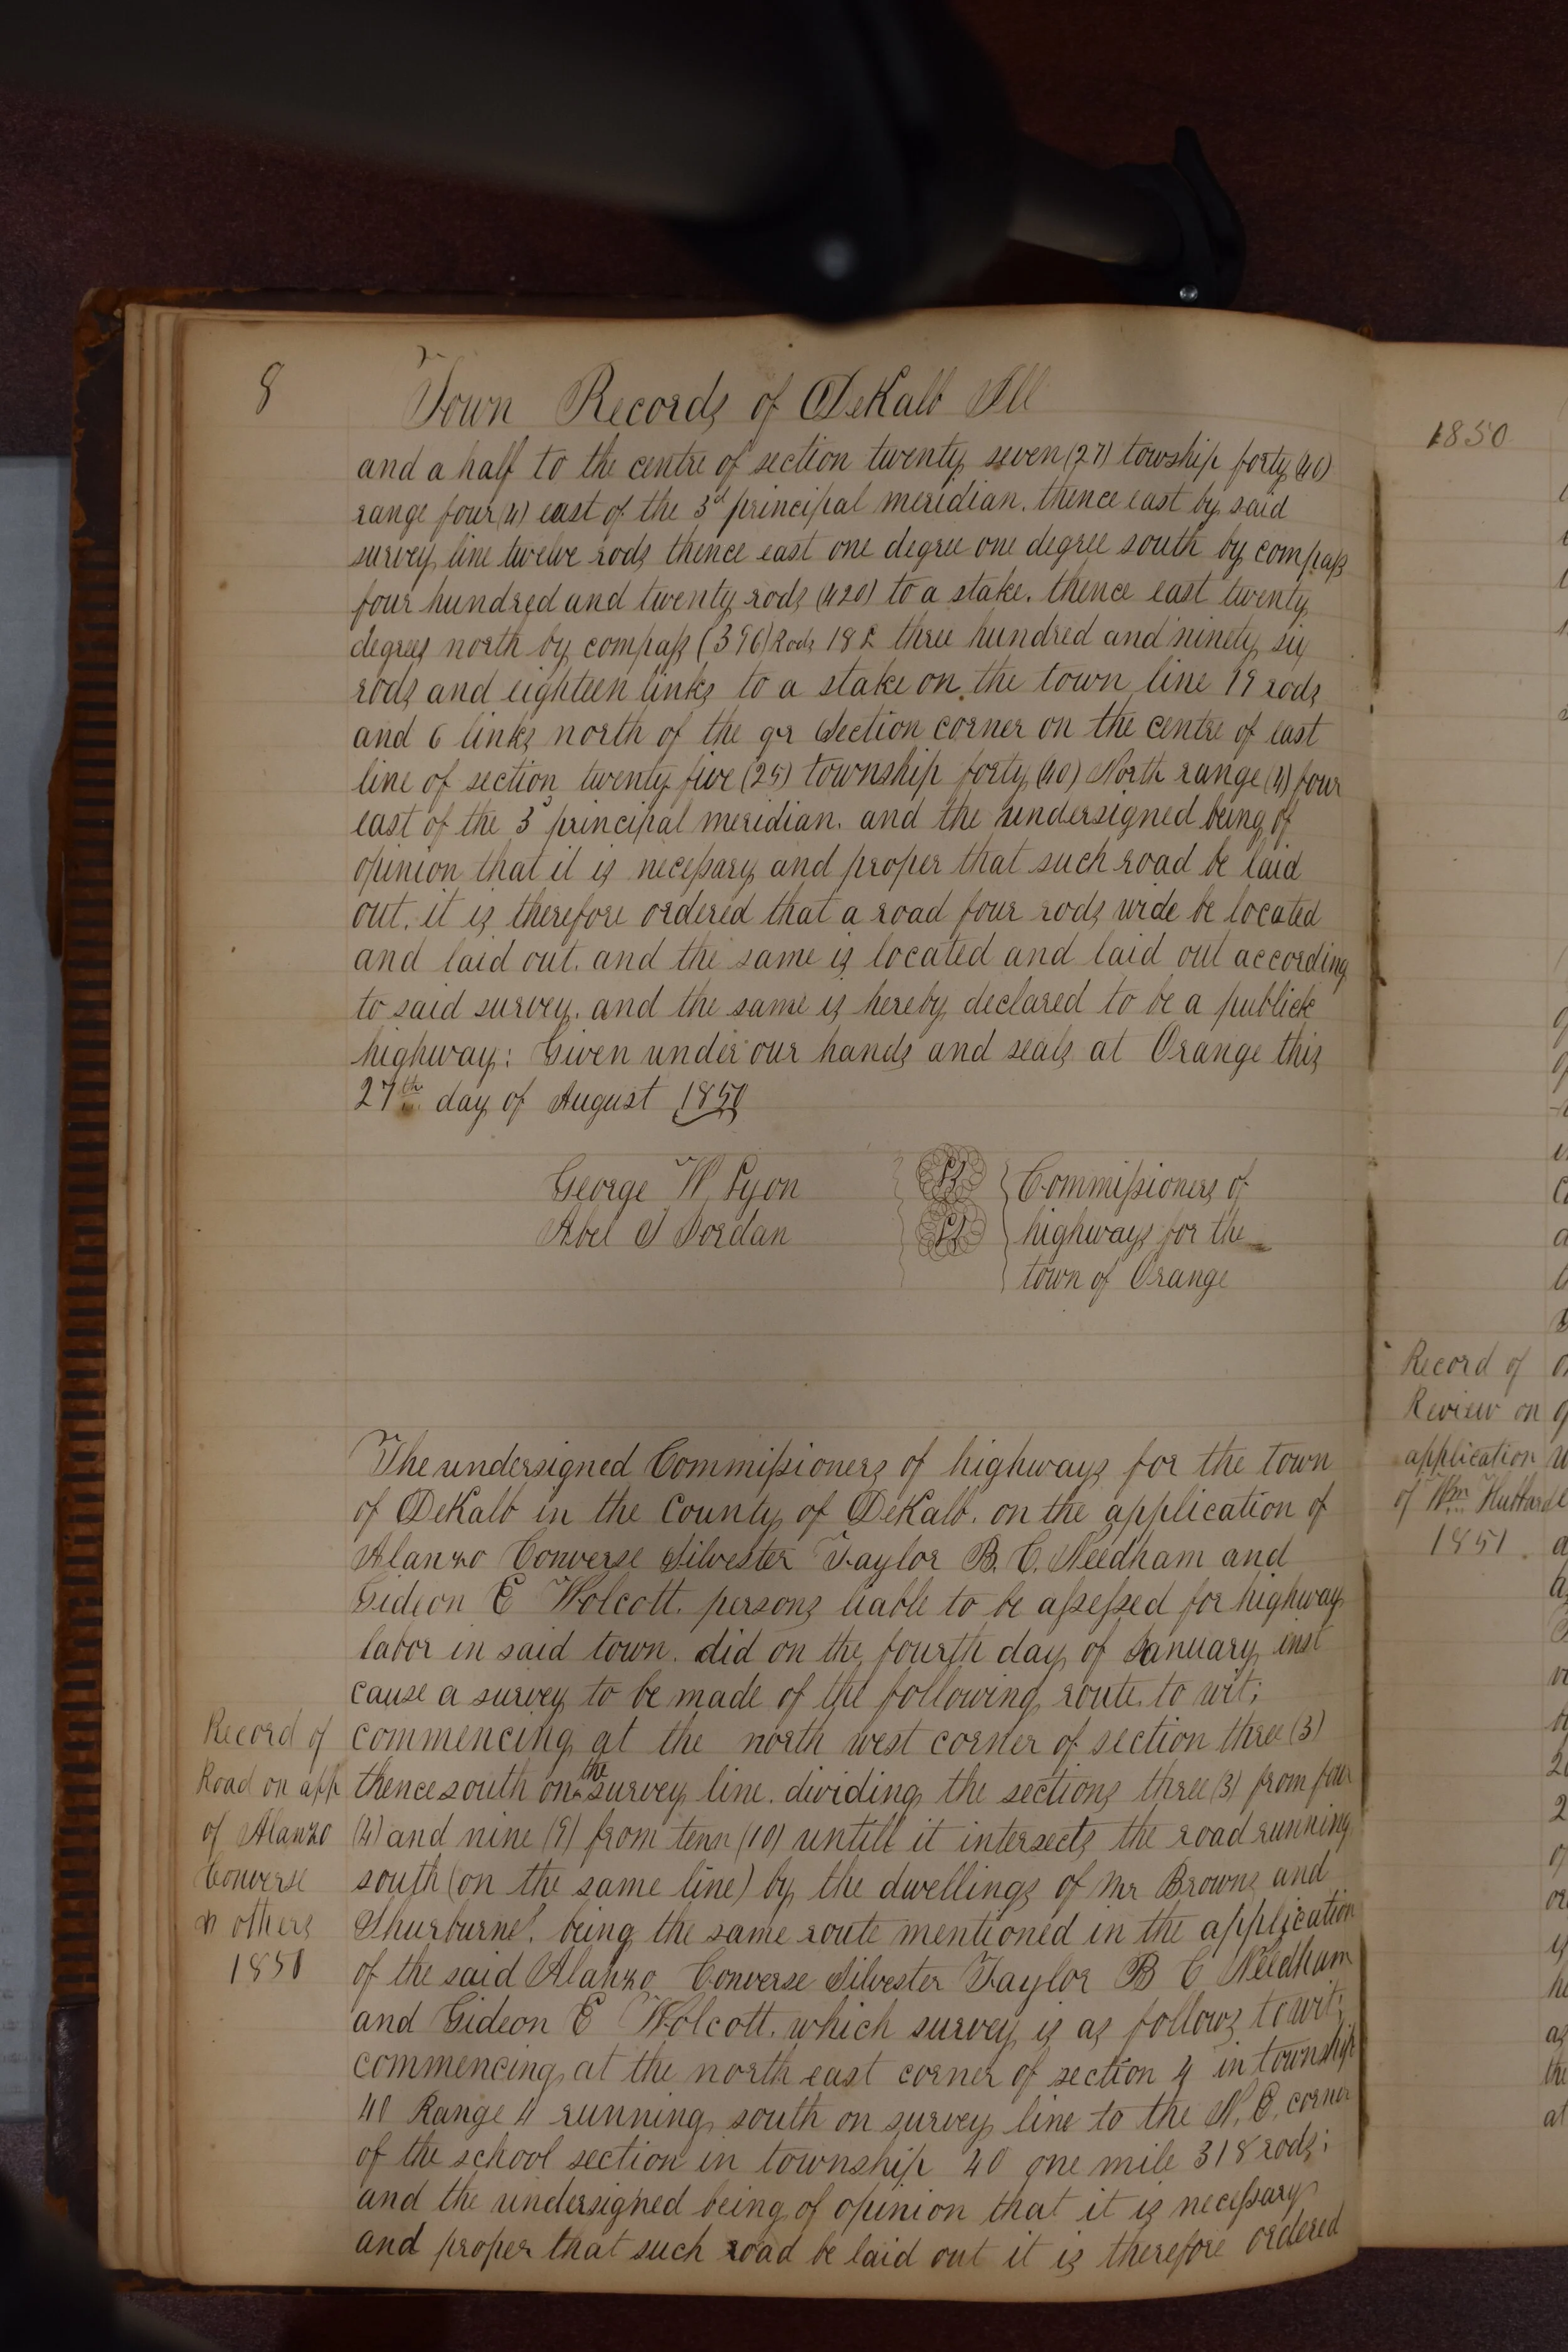 8
Town Records of DeKalb Ill
and a half to the centre of section twenty seven (27) towship forty (40)
range four (4) east of the 3d principal meridian. thence east by said
survey line twelve rods thence east one degree one degree south by compass
four hundred and twenty rods (420) to a stake. thence east twenty
degrees north by compass (396) Rods 18 L three hundred and ninety six
rods and eighteen links to a stake on the town line 19 rods
and 6 links north of the qr Section corner on the centre of east
line of section twenty five (25) township forty (40) North range (4) four
east of the 3d principal meridian. and the undersigned being of
opinion that it is necessary and proper that such road be laid
out. it is therefore ordered that a road four rods wide be located
and laid out. and the same is located and laid out according
to said survey. and the same is hereby declared to be a publick
highway: Given under our hands and seals at Orange this
27th day of August 1850
George W Lyon LS Commissioners of
Abel S Jordan LS highways for the
town of Orange
The undersigned Commissioners of highways for the town
of DeKalb in the County of DeKalb. on the application of
Alanzo Converse Silvester Taylor B. C. Needham and
Gideon E Wolcott. persons liable to be assessed for highway
labor in said town. did on the fourth day of January inst
cause a survey to be made of the following route. to wit;
commencing at the north west corner of section three (3)
thence south on the survey line. dividing the sections three (3) from four
(4) and nine (9) from tenn (10) untill it intersects the road running
south (on the same line) by the dwellings of Mr Browns and
Thurburns. being the same route mentioned in the application
of the said Alanzo Converse Silvester Taylor B C Needham
and Gideon E Wolcott. which survey is as follows to wit;
commencing at the north east corner of section 4 in township
40 Range 4 running south on survey line to the N. E. corner
of the school section in township 40 one mile 318 rods;
and the undersigned being of opinion that it is necessary
and proper that such road be laid out it is therefore ordered
Record of
Road on app
of Alanzo
Converse
n others
1851
1850
Record of
Review on
application
of Wm
1851